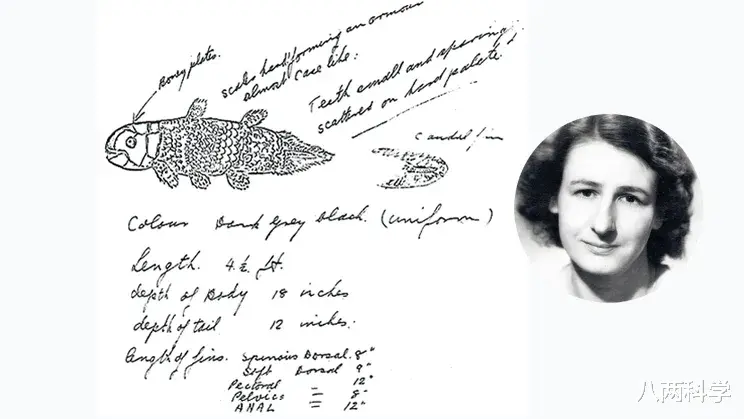 Boney plates.
scales hard forming an armour
almost case like.
Teeth small and sparing
scattered on hard palate
Caudal fin
Colour Dark Grey black. (uniform)
Length. 4½ ft.
depth of Body 18 inches
depth of tail 12 inches.
Length of fins. Spinous Dorsal. 8"
Soft Dorsal 9"
Pectoral = 12"
Pelvics = 8"
ANAL = 12"
八两科学